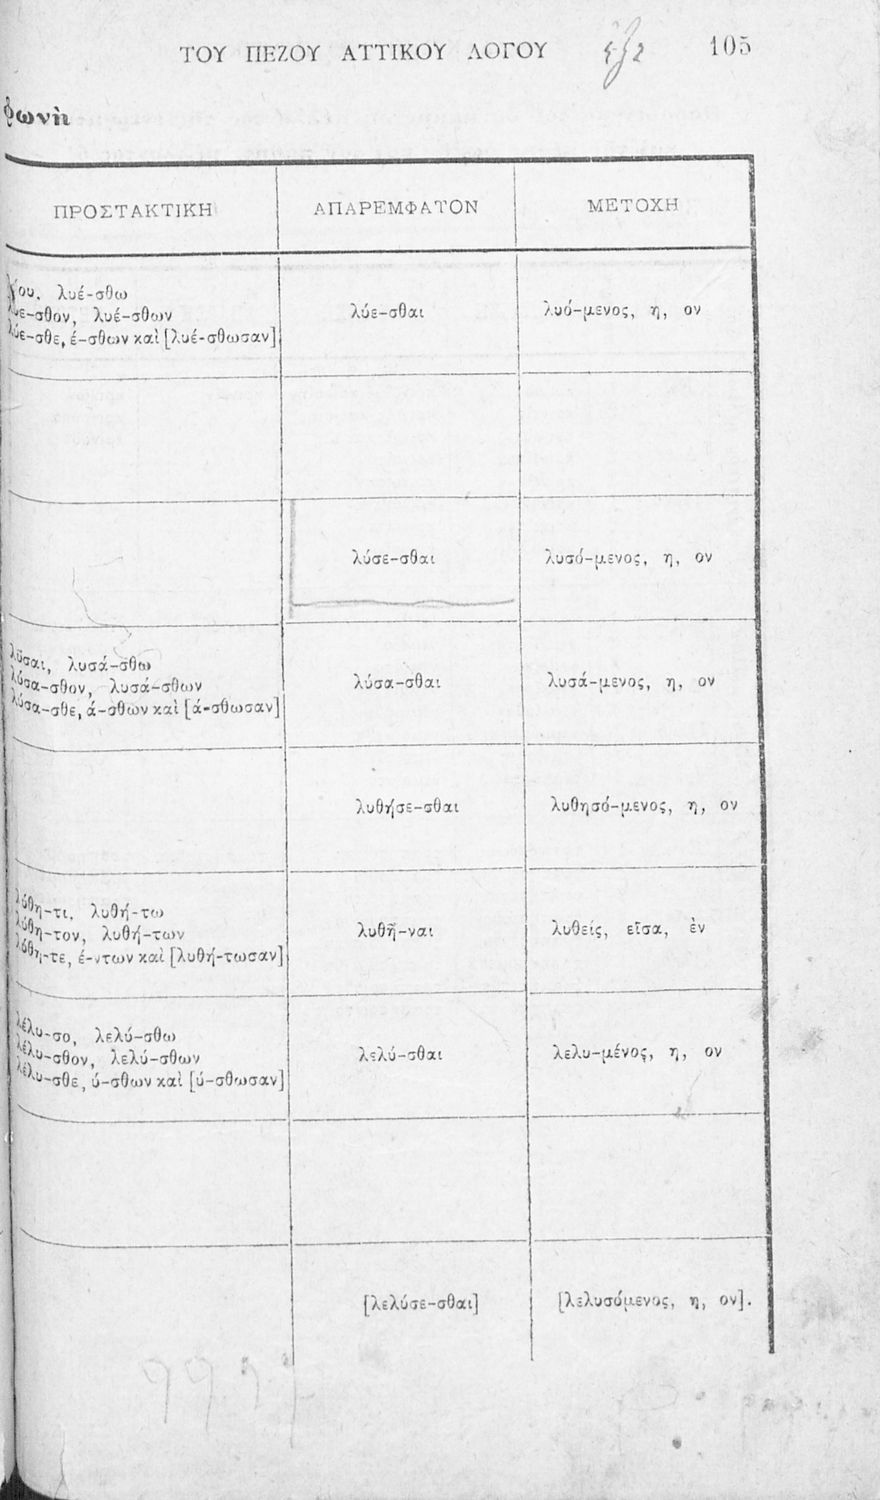 ΤΟΥ ΠΕΖΟΥ ΑΤΤΙΚΟΥ ΛΟΓΟΥ 105
φωνὴ
ΠΡΟΣΤΑΚΤΙΚΗ ΑΠΑΡΕΜΦΑΤΟΝ ΜΕΤΟΧΗ
λύου, λυέ-σθω
λύε-σθον, λυέ-σθων
λύε-σθε, έ-σθων καὶ [λυέ-σθωσαν]
λύε-σθαι
λυό-μενος, η, ον
λύσε-σθαι
λυσό-μενος, η, ον
λῦσαι, λυσά-σθω
λύσα-σθον, λυσά-σθων
λύσα-σθε, ά-σθων καὶ [ά-σθωσαν]
λύσα-σθαι
λυσά-μενος, η, ον
λυθήσε-σθαι
λυθησό-μενος, η, ον
λύθη-τι, λυθή-τω
λύθη-τον, λυθή-των
λύθη-τε, έ-ντων καὶ [λυθή-τωσαν]
λυθῆ-ναι
λυθείς, εῖσα, ἐν
λέλυ-σο, λελύ-σθω
λέλυ-σθον, λελύ-σθων
λέλυ-σθε, ύ-σθων καὶ [ύ-σθωσαν]
λελύ-σθαι
λελυ-μένος, η, ον
[λελύσε-σθαι]
[λελυσόμενος, η, ον].